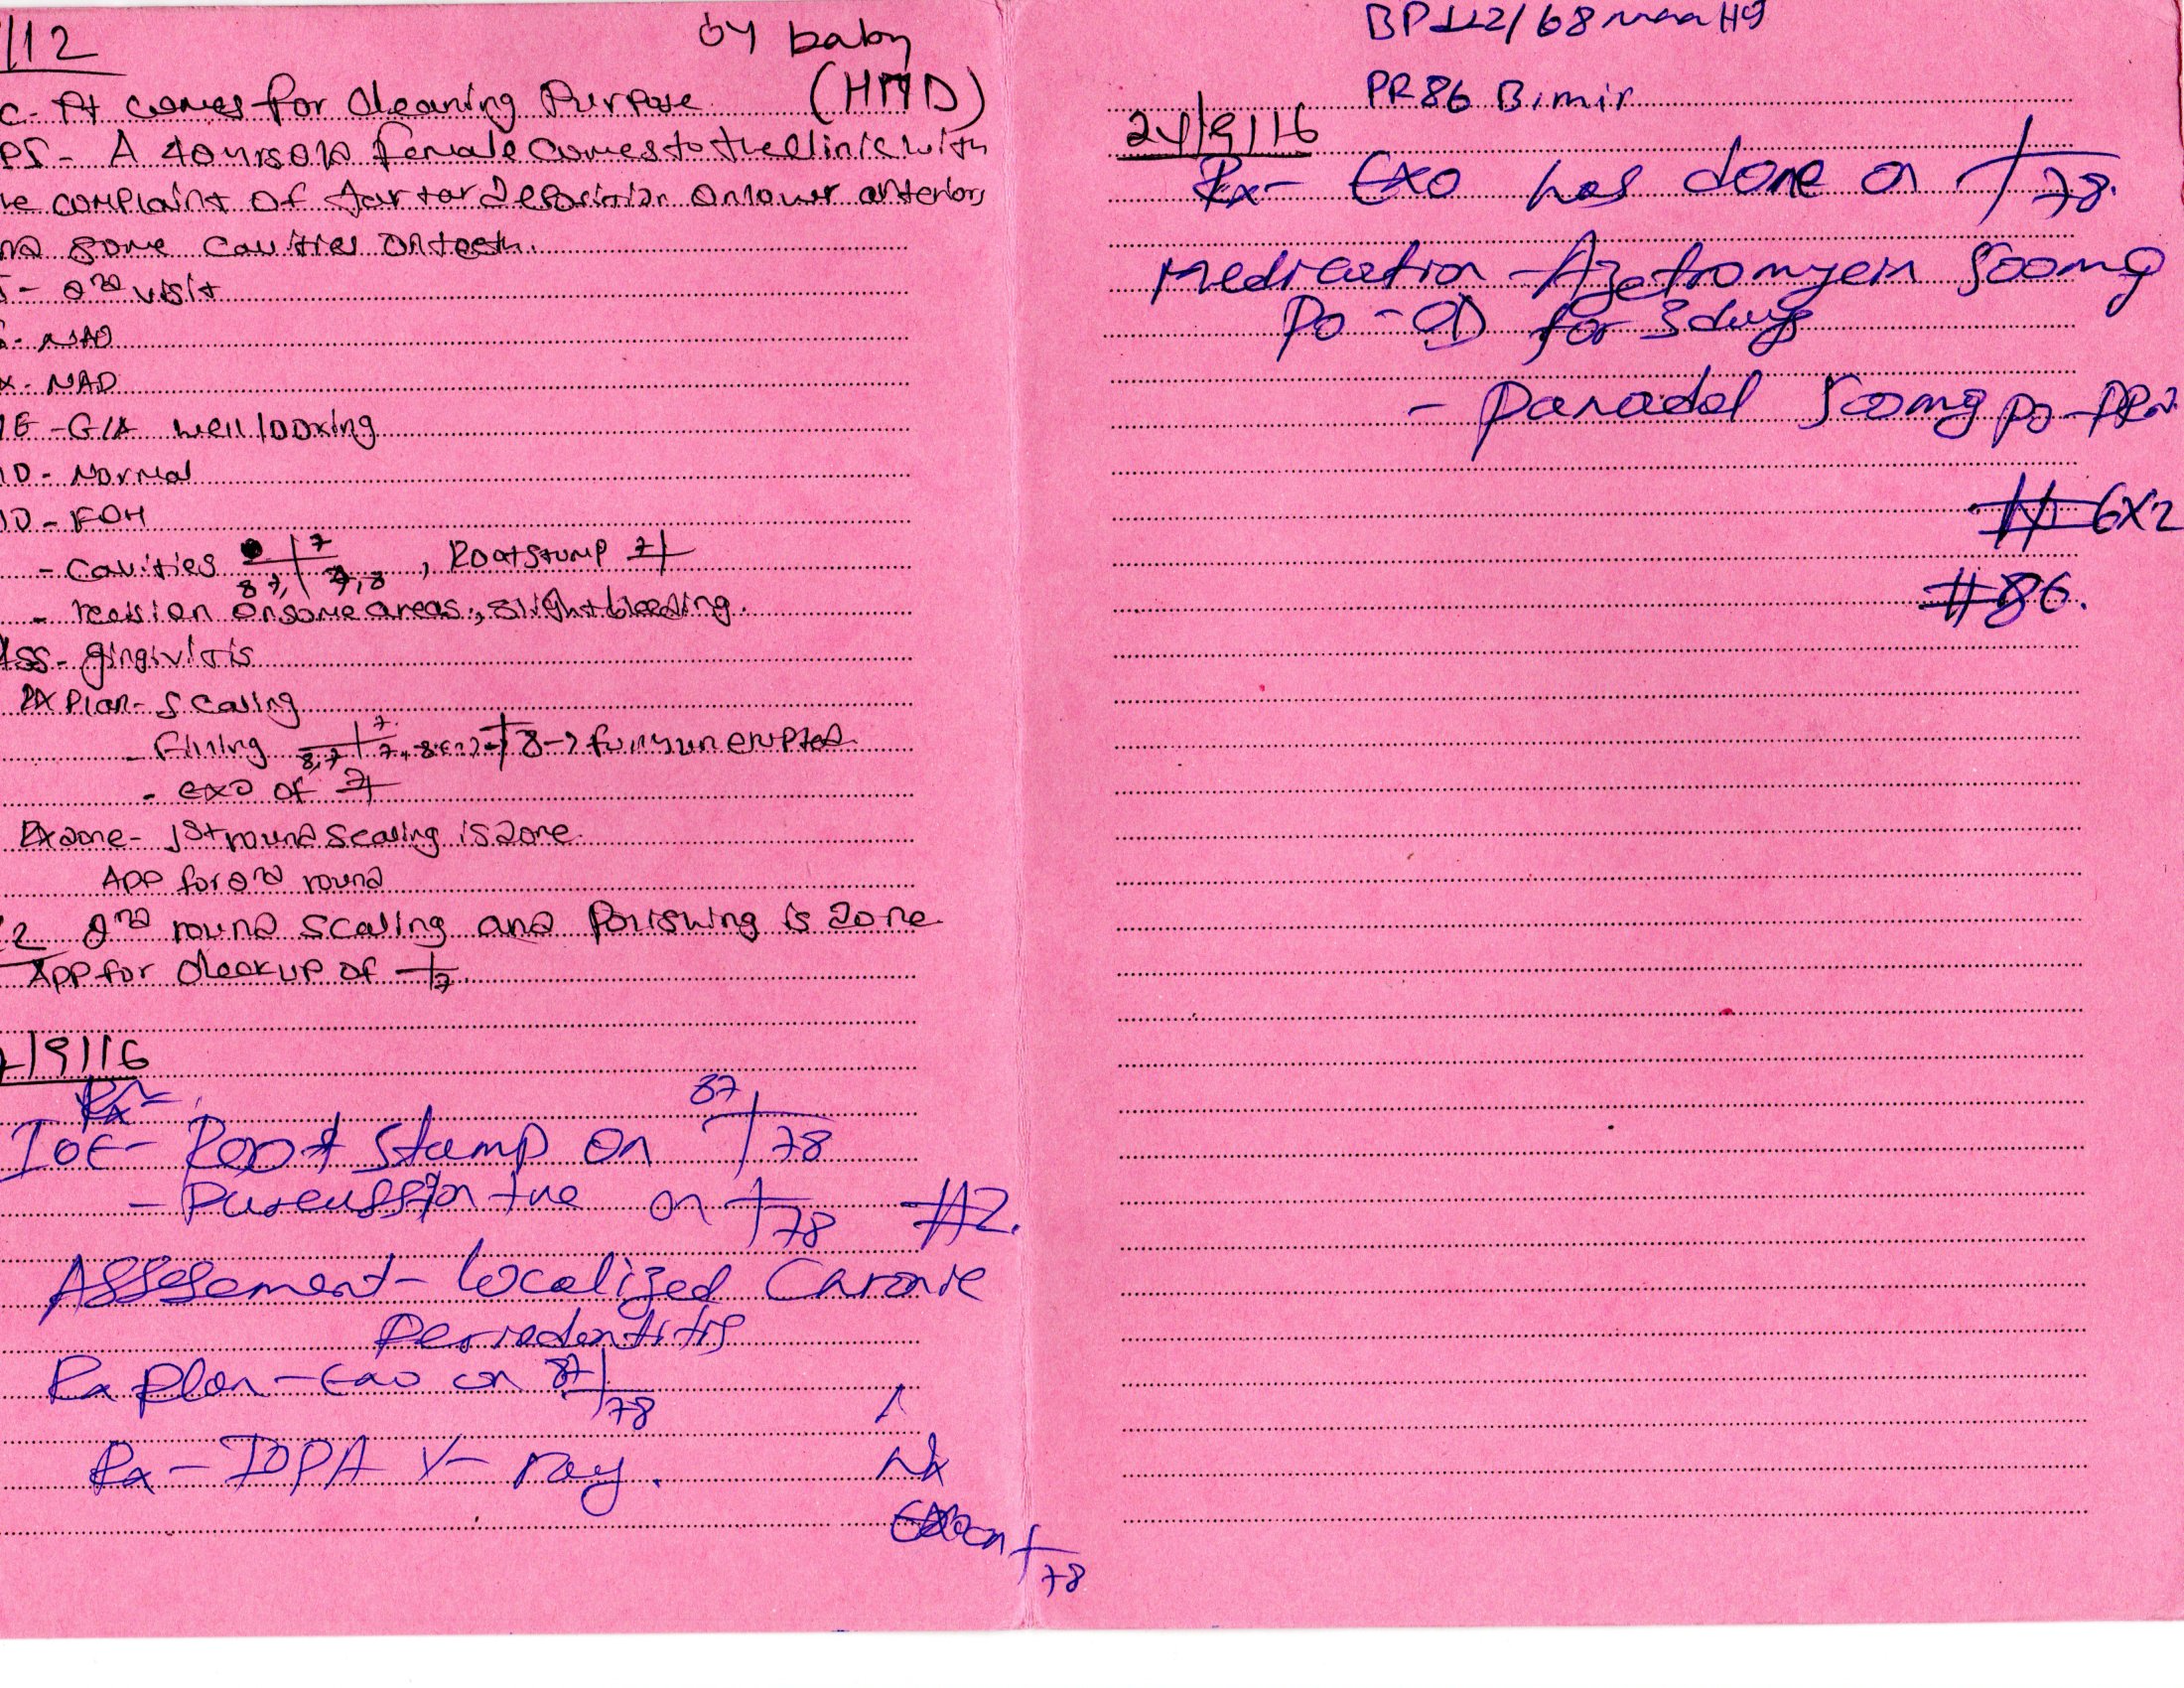 /12
by baby
(HMD)
C- Pt comes for cleaning Purpose
PS - A 40 yrs old female comes to the clinic with
he complaint of tartar deposition on lower anteriors
nd some cavities on teeth.
- 2nd visit
- NAD
x- NAD
E - G/A well looking
O - Normal
O - FOH
- Cavities 7 8 7, 7,8 , Root stump 7
- recision on some areas, slight bleeding.
Ass- gingivitis
Rx Plan- Scaling
- Filling 7 8,7 7, 8 8 -> fully un erupted
- exo of 7
Rx done - 1st round scaling is done
App for 2nd round
2 2nd round scaling and Polishing is done
App for checkup of 7
/9/16
Rx-
IOE- Root stamp on 87 78
- Purcussion +ve on 78 #2.
Asssesment- localized Caronic
Periedentitis
Rx Plan - Exo on 87 78
Rx - IOPA X- ray.
Nx
Exo on 78
BP 112/68 mmHg
PR 86 B/min
24/9/16
Rx- Exo has done on 78.
Medication - Azetromycin 500mg
Po - OD for 3 days
- Panadol 500mg po - PRN
6x2
#86.